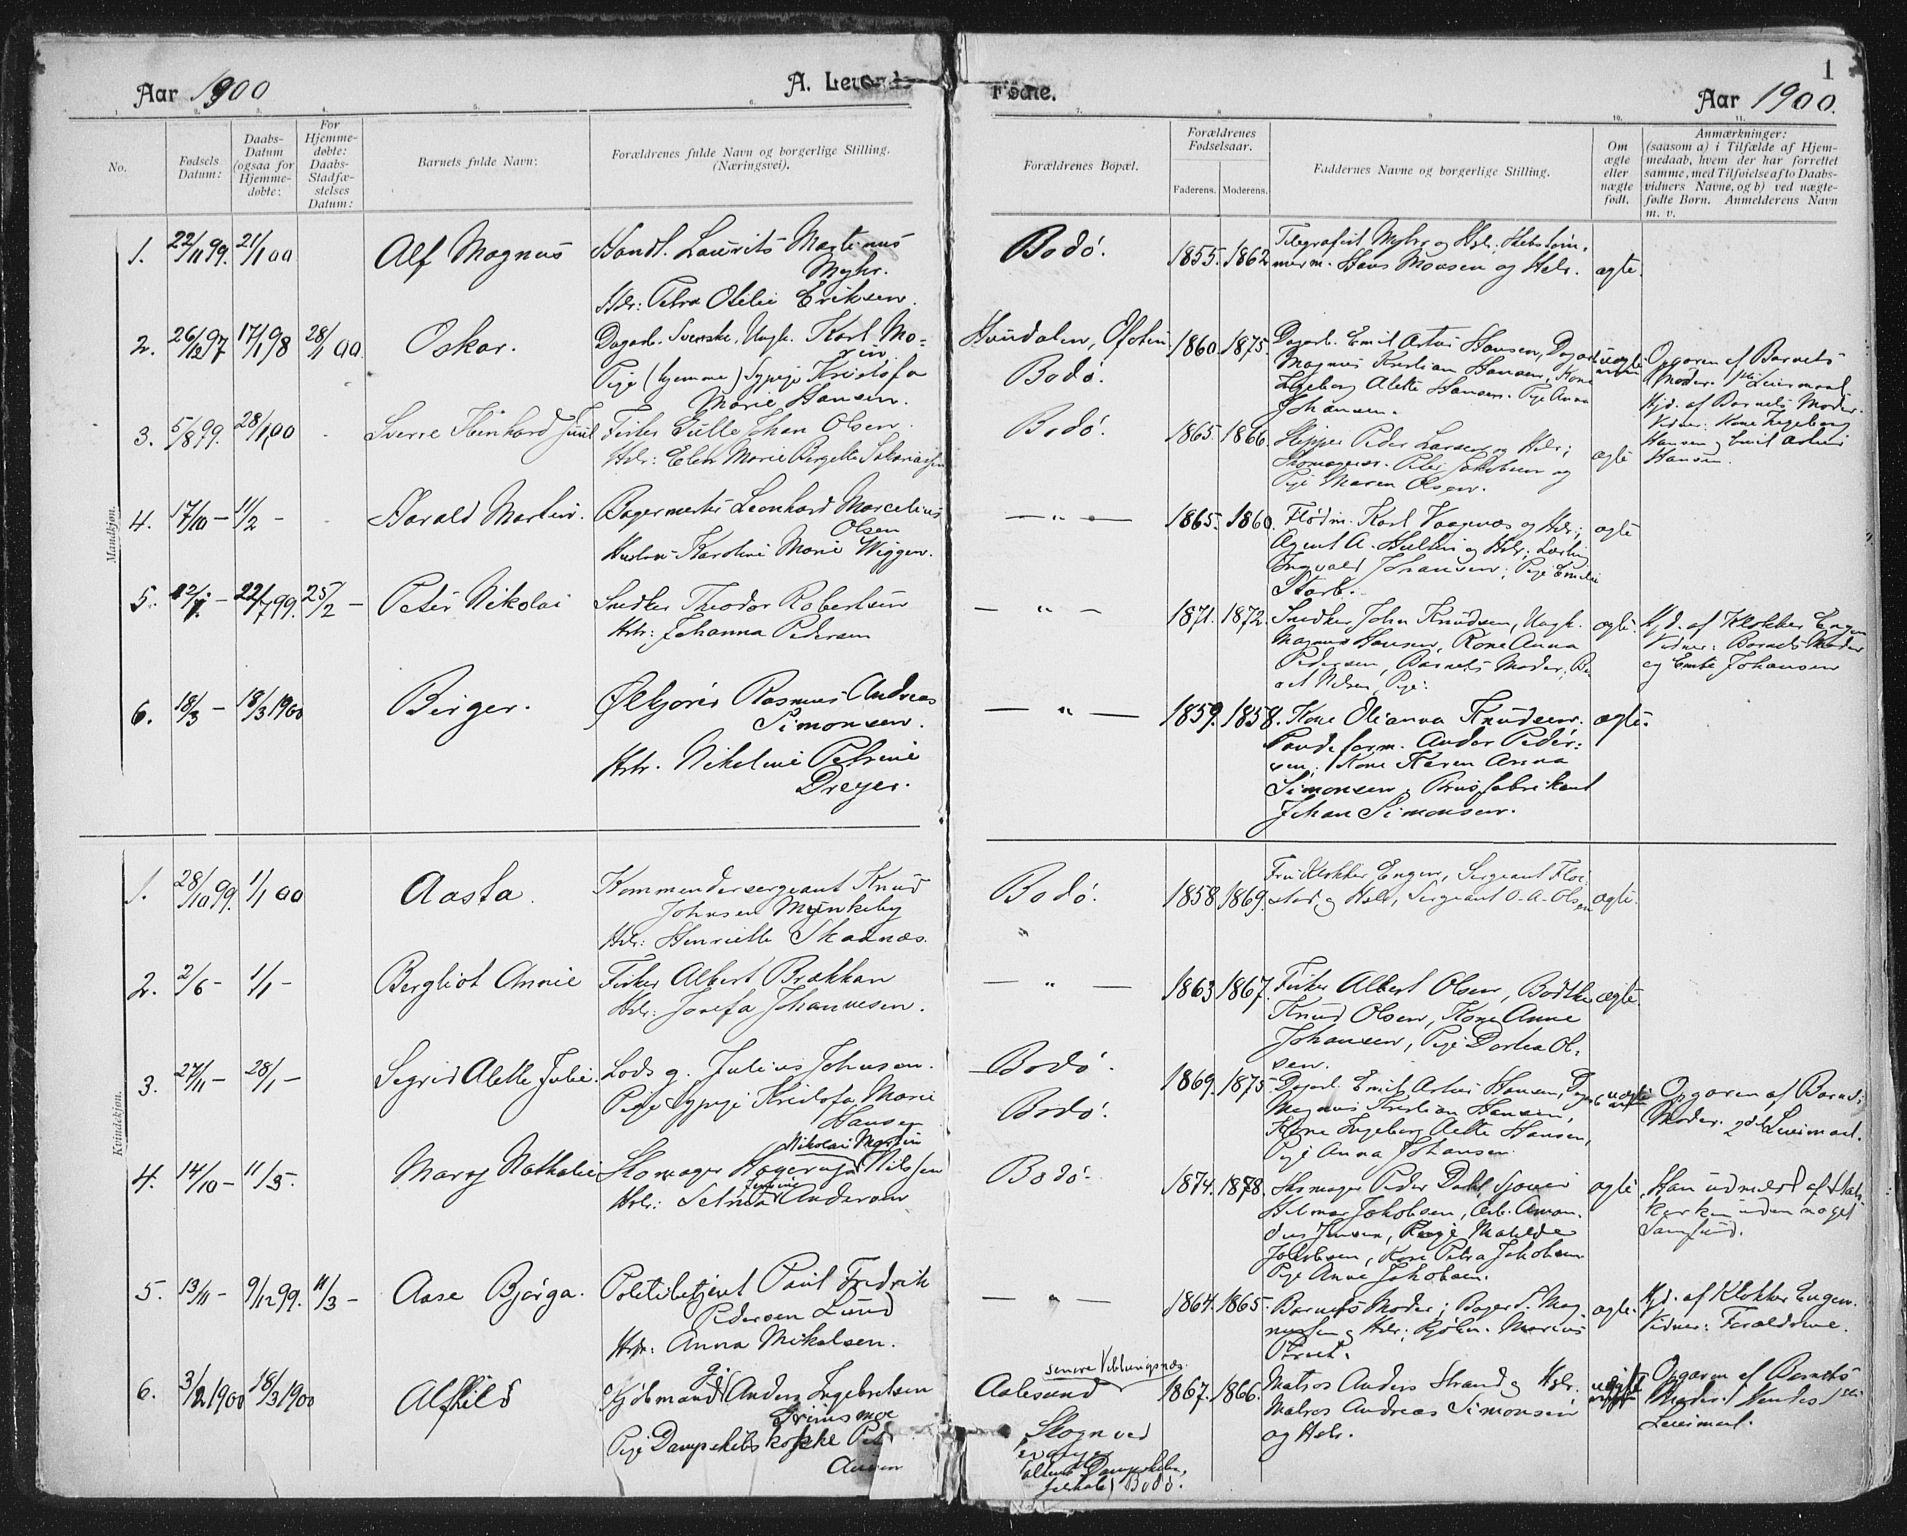 1
Aar 1900 A. Levende
Fødte. Aar 1900.
1. 2. 3. 4. 5. 6. 7. 8. 9. 10. 11.
No.
Fødsels Datum:
Daabs-Datum (ogsaa for Hjemmedøbte:
For Hjemmedøbte: Daabs-Stadfæstelses Datum:
Barnets fulde Navn:
Forældrenes fulde Navn og borgerlige Stilling. (Næringsvei).
Forældrenes Bopæl.
Forældrenes Fødselsaar.
Faderens. Moderens.
Faddernes Navne og borgerlige Stilling.
Om ægte eller nægte født.
Anmærkninger: (saasom a) i Tilfælde af Hjemmedaab, hvem der har forrettet samme, med Tilføielse af to Daabsvidners Navne, og b) ved nægtefødte Børn. Anmelderens Navn m. v.
Mandkjøn.
1. 22/11 99. 21/1 00 Alf Magnus Handl. Laurits Martinus
Myhr.
Hstr: Petra Otilie Eriksen.
Bodø. 1855. 1862 Telegrafist Myhre og Hstr.
Hans Moasen og Hstr. ægte.
2. 26/12 97 17/1 98 28/1 00. Oskar. Dagarb. Svenske, Ungk. Karl Mo-
rin
Pige (hjemme) Sypige Kristofa
Marie Hansen.
Hundalen, Ofoten
Bodø.
1860. 1875. Dagarb. Emil Artur Hansen, Dagarb.
Magnus Kristian Hansen, Kone
Ingeborg Alette Hansen. Pige Anna
Johansen.
uægte
Opgaven af Barnets
Moder. 1ste Leiermaal
Hjd. af Barnets Moder.
Vidner: Kone Ingeborg
Hansen og Emil Artur
Hansen.
3. 5/8 99. 28/1 00 Sverre Juul Fisker Johan Olsen.
Hstr: Elen Marie Bergette
Bodø. 1865. 1866. Skipper Peder Larsen og Hstr;
Skomager Peter Jakobsen og
Pige Maren Olsen. ægte
4. 17/10 – 11/2 – Harald Martin. Bagermester Leonhard Marcelius
Olsen
Hustru Karoline Marie Wiggen.
— " — 1865. 1860. Karl Vaagenæs og Hstr;
Agent A. og Hstr; Lærling
Ingvald Johansen; Pige Emelie
Storb. ægte
5. 22/7 99. 25/2 – Peter Nikolai Snedker Theodor Robertsen
Hstr: Johanna Pedersen
— " — 1871. 1872. Snedker John Knudsen, Ungk.
Magnus Hansen, Kone Anna
Pedersen, Barnets Moder,
Nilsen, Pige. ægte.
Hjd. af Klokker Engen
Vidner: Barnets Moder
og Johansen
6. 18/3 – 18/3 1900 Birger. Rasmus Andreas
Simonsen.
Hstr. Nikoline Petrine
Dreyer.
— " — 1859. 1858. Kone Olianna Knudsen.
Ander Peder-
sen, Kone Karen Anna
Simonsen, Brusfabrikant
Johan Simonsen. ægte.
Kvindekjøn.
1. 28/10 99. 1/1 00 Aasta. Kommandersergeant Knud
Johnsen Munkeby
Hstr: Henriette Skadnæs.
Bodø. "
1858 1869. Fru Klokker Engen, Sergeant Flor-
stad og Hstr, Sergeant O. A. Olsen ægte.
2. 2/6 – 1/1 – Bergliot Annie Fisker Albert Brækkan
Hstr: Josefa Johannesen.
— " — 1863 1867. Fisker Albert Olsen,
Knud Olsen, Kone Anne
Johansen, Pige Dorlea Ol-
sen. ægte.
3. 27/11 – 28/1 – Sigrid Alette Julie. Lods g. Julius Johnsen.
Pige Sypige Kristofa Marie
Hansen
Bodø.
Bodø.
1869. 1875. Dagarb. Emil Artur Hansen,
Magnus Kristian Hansen,
Kone Ingeborg Alette Hansen,
Pige Anna Johansen.
uægte
Opgaven af Barnets
Moder. 2det Leiermaal.
4. 14/10 – 11/3. Mary Nathalie Skomager Nikolai Martin Nilssen
Hstr: Selma Andersen
Bodø. 1874. 1878. Skomager Peder Dahl,
Hilmar Jakobsen, Arb. Aman-
dus Jensen, Pige Matilde
Jakobsen, Kone Petra Jakobsen
Pige Anne Jakobsen. ægte
Han udmeldt af Stats-
kirken uden noget
Samfund.
5. 13/11 – 9/12 99. 11/3 – Aase Bjørga. Politibetjent Paul Fredrik
Pedersen Lund
Hstr: Anna Mikalsen.
— " — 1864. 1865. Barnets Moder; Bager S. Mag-
nussen og Hstr; Kjøbm. Marius
ægte.
Hjd. af Klokker Engen.
Vidner: Forældrene.
6. 3/2 1900 18/3 1900 Alfhild Kjøbmand g. Anders Ingebretsen
Grimsmoe
Pige Dampskibskokke
senere Veblungsnæs.
Aalesund
Skogn ved
Bodø.
1867. 1866. Matros Anders Strand og Hstr.
Matros Andreas Simonsen
og Hstr. uægte
Opgaven af Barnets
Moder. Hendes 1ste
Leiermaal.